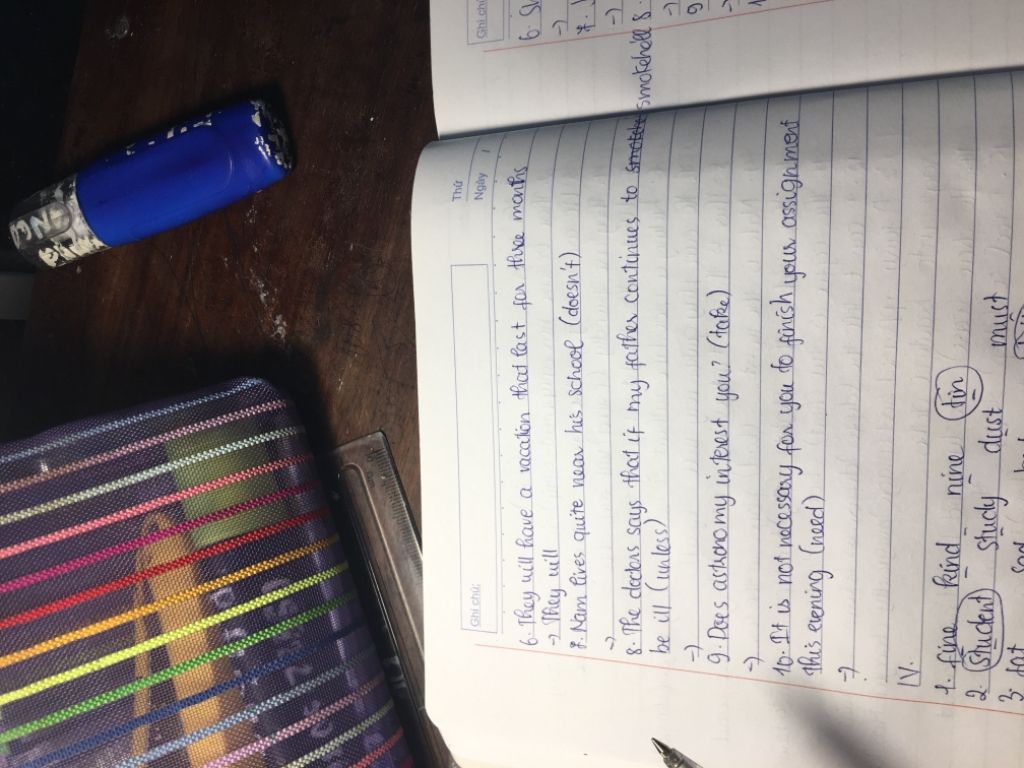 Ghi chú:
Thứ
Ngày /
6. They will have a vacation that last for three months
-> They will
7. Nam lives quite near his school (doesn't)
->
8. The doctors says that if my father continues to smoke he'll
be ill (unless)
->
9. Does astronomy interest you? (take)
->
10. It is not necessary for you to finish your assignment
this evening (need)
->
IV.
1. fine kind nine tin
2. Student Study dust must
3
Ghi chú
6.
->
7.
->
8.
->
9
->